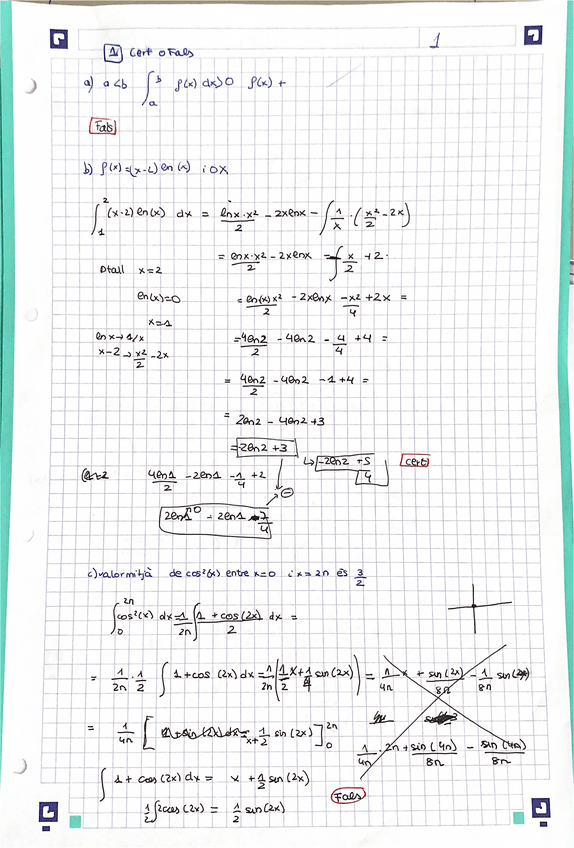 1
1. Cert o Fals
a) a<b ∫_a^b f(x) dx>0 f(x) +
Fals
b) f(x)=(x-2)ln(x) i OX
∫_1^2 (x-2)ln(x) dx = lnx·x²/2 - 2xlnx - ∫ 1/x · (x²/2 - 2x)
= lnx·x²/2 - 2xlnx - ∫ x/2 + 2
Ptall x=2
ln(x)=0
x=1
= ln(x)x²/2 - 2xlnx - x²/4 + 2x =
lnx→1/x
x-2→x²/2 - 2x
= 4ln2/2 - 4ln2 - 4/4 + 4 =
= 4ln2/2 - 4ln2 - 1 + 4 =
= 2ln2 - 4ln2 + 3
= -2ln2 + 3
↳ -2ln2 + 5/4
cert
4ln1/2 - 2ln1 - 1/4 + 2
⊖
2ln1 - 2ln1 7/4
c) valor mitjà de cos²(x) entre x=0 i x=2π és 3/2
∫_0^2π cos²(x) dx = 1/2π ∫ 1+cos(2x)/2 dx =
= 1/2π · 1/2 ∫ 1+cos(2x) dx = 1/2π (1/2 x + 1/4 sin(2x)) = 1/4π x + sin(2x)/8π - 1/8π sin(2x)
= 1/4π [ x + 1/2 sin(2x) ]_0^2π
1/4π · 2π + sin(4π)/8π - sin(4π)/8π
∫ 1+cos(2x) dx = x + 1/2 sin(2x)
Fals
1/2 ∫ 2cos(2x) = 1/2 sin(2x)